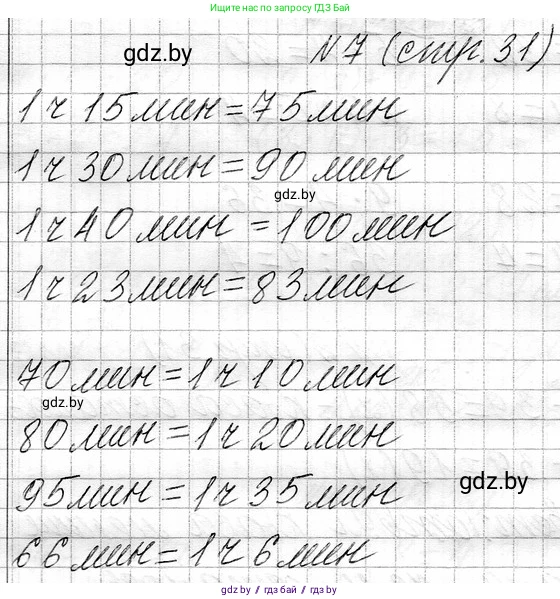 Ищите нас по запросу ГДЗ Бай
gdz.by
№7 (стр. 31)
1 ч 15 мин = 75 мин
1 ч 30 мин = 90 мин
gdz.by
1 ч 40 мин = 100 мин
1 ч 23 мин = 83 мин
70 мин = 1 ч 10 мин
gdz.by
80 мин = 1 ч 20 мин
95 мин = 1 ч 35 мин
gdz.by
66 мин = 1 ч 6 мин
gdz.by / гдз бай / gdz.by